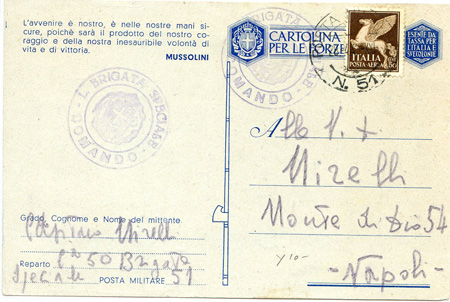 L'avvenire è nostro, è nelle nostre mani si-
cure, poichè sarà il prodotto del nostro co-
raggio e della nostra inesauribile volontà di
vita e di vittoria.
MUSSOLINI
CARTOLINA
PER LE FORZE
ESENTE DA
TASSA PER
L'ITALIA E
SVE COLONIE
ITALIA
POSTA AEREA
N. 51
BRIGATA SPECIALE
COMANDO
BRIGATA
COMANDO
Alla
Mirelli
Monte di Dio 54
Napoli
Grado, Cognome e Nome del mittente
Capitano Mirelli
Reparto 50 Brigata
Speciale POSTA MILITARE 51